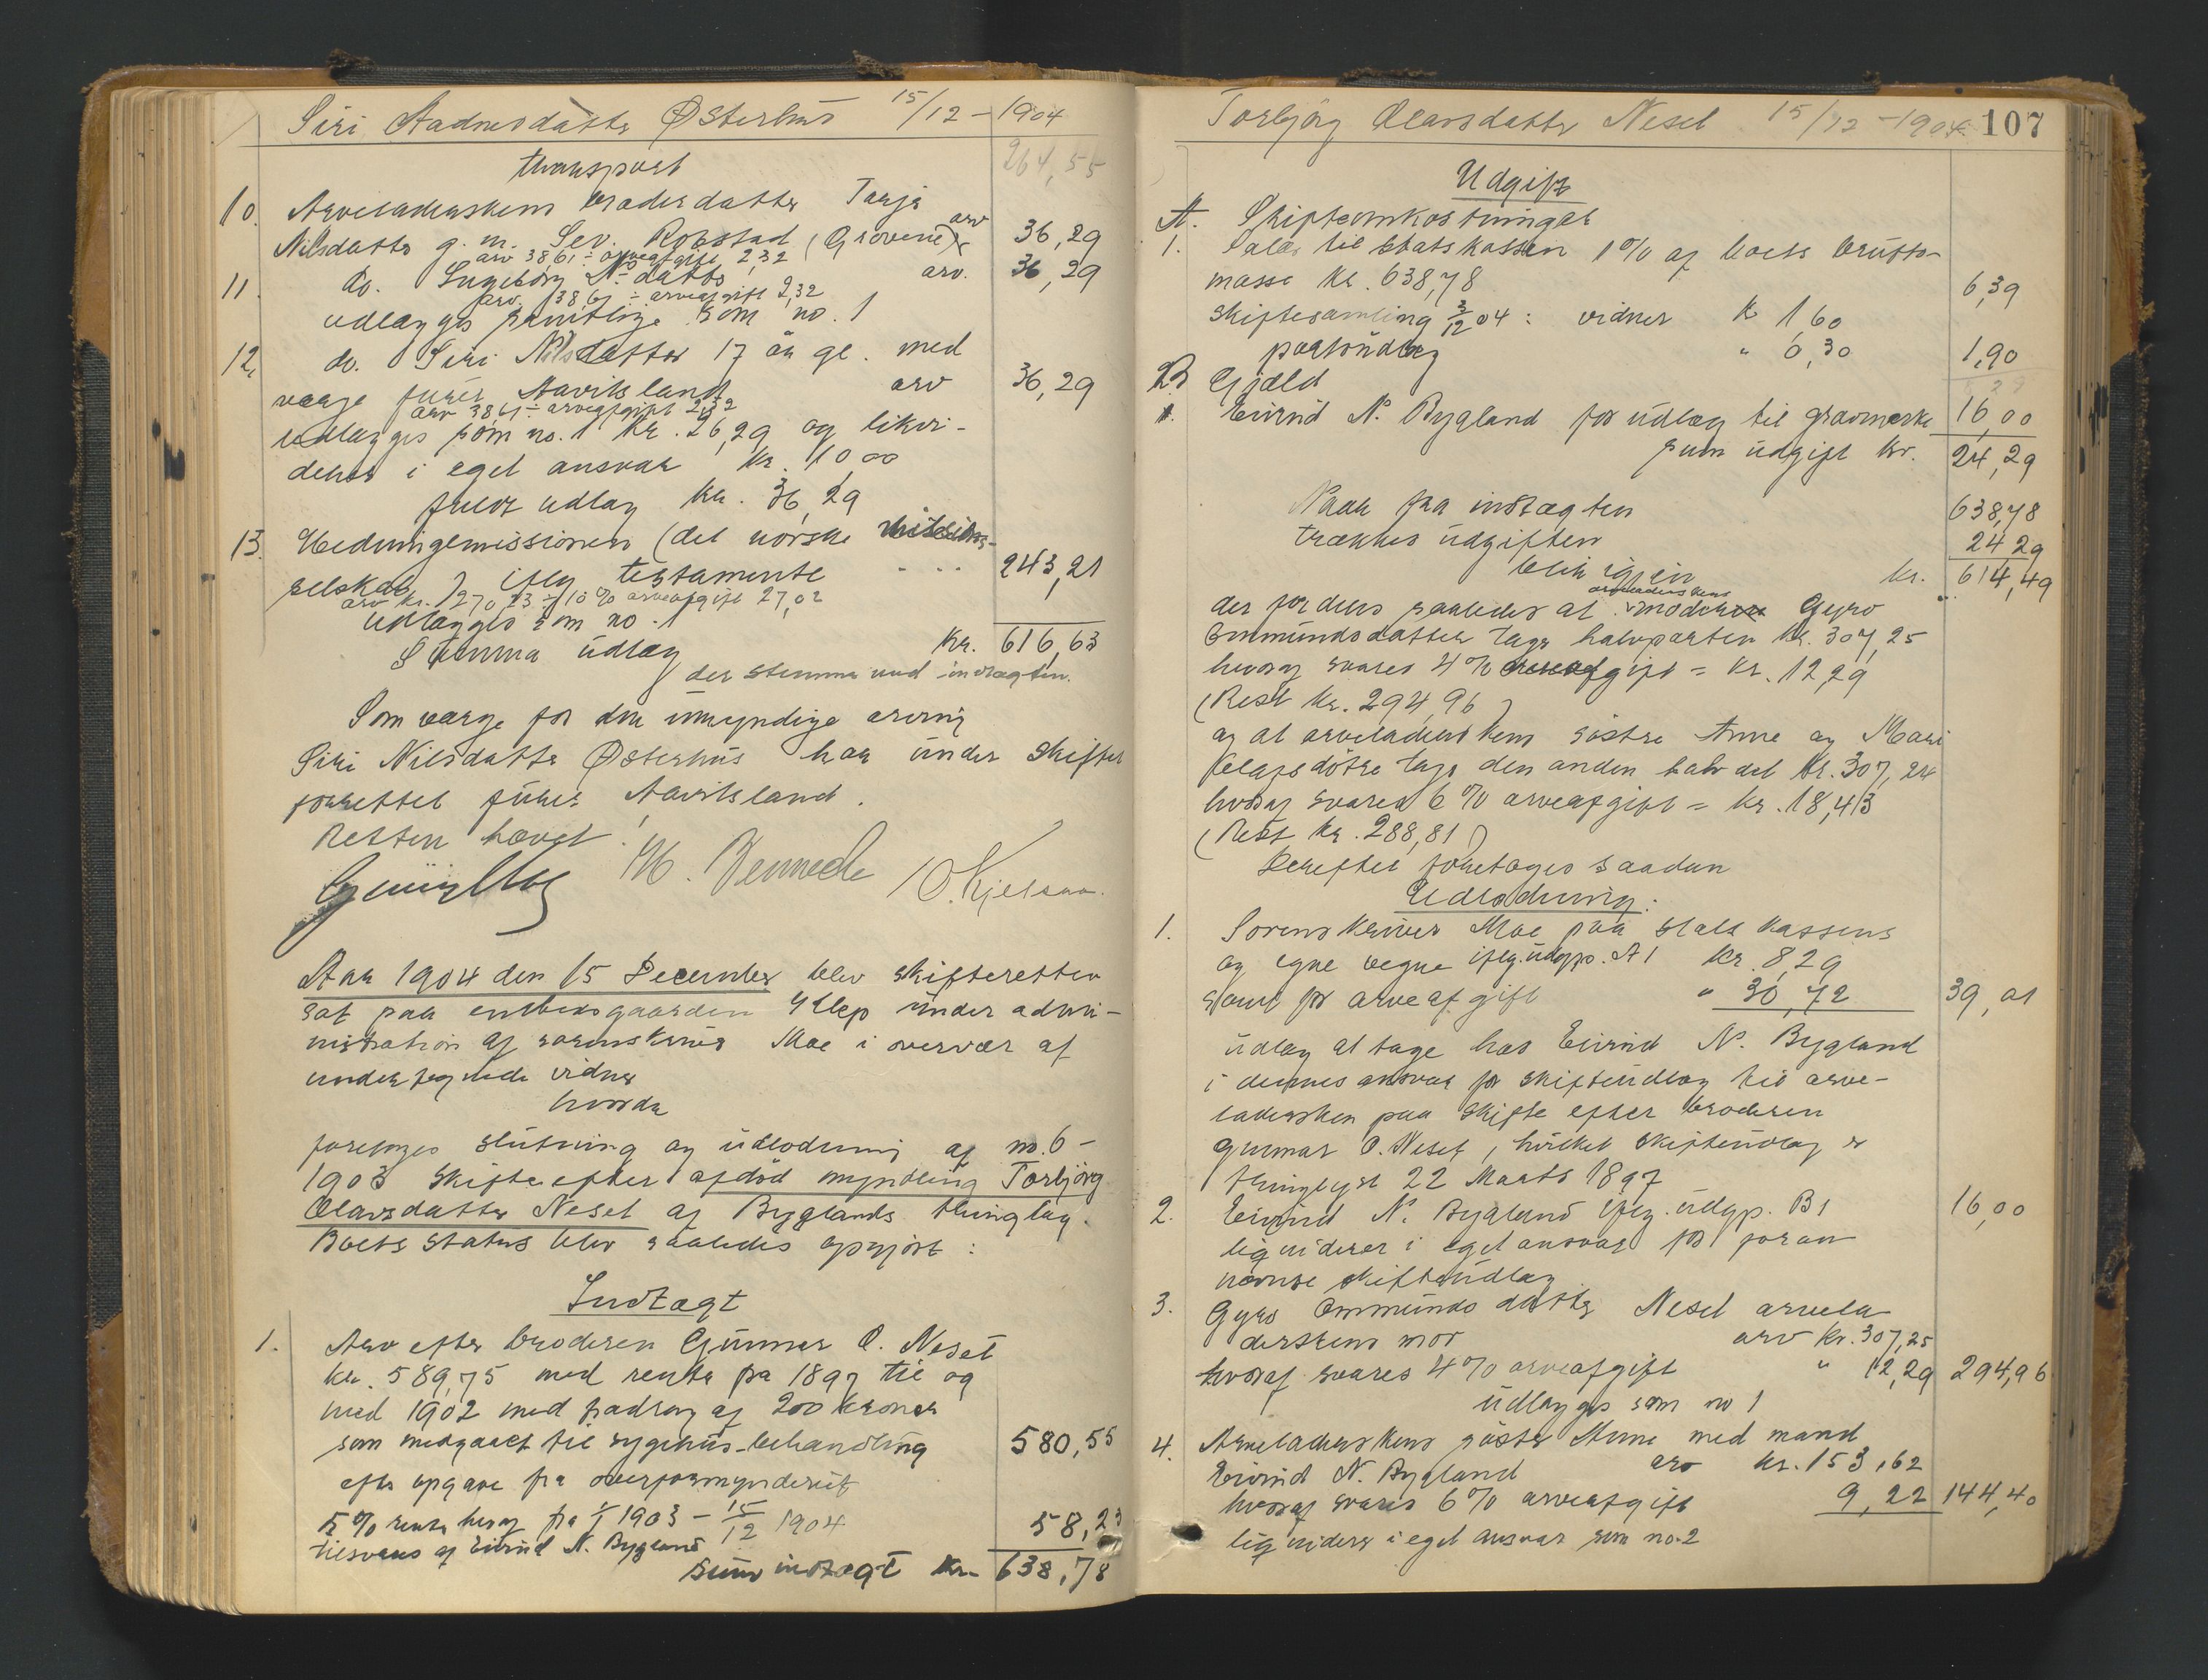 Siri Aadnesdatter Østerhus 15/12 - 1904
transport 264,55
10. Arveladerskens broderdatter Tarje
Nilsdatter g. m. Sev. Robstad (Grovene) arv 36,29
arv 38,61 ÷ arveafgift 2,32
11. do. Ingeborg N.datter arv. 36,29
arv 38,61 ÷ arveafgift 2,32
udlægges samtlige som no. 1
12. do. Siri Nilsdatter 17 år gl. med
værge Avitsland arv 36,29
arv 38,61 ÷ arveafgift 2,32
udlægges som no. 1 Kr. 26,29 og likvi-
derer i eget ansvar Kr. 10,00
fuldt udlæg Kr. 36,29
13. Hedningemissionen (det norske missions-
selskab) iflg testamente 243,21
arv Kr. 270,23 ÷ 10% arveafgift 27,02
udlægges som no. 1
Summa udlæg Kr. 616,63
der stemmer med indtægten.
Som værge for den umyndige arving
Siri Nilsdatter Østerhus har under skiftet
forrettet Avitsland.
Retten hævet
M. Vennede O. Kjelsaa.
Aar 1904 den 15 December blev skifteretten
sat paa embedsgaarden Klep under admi-
nistration af sorenskriver Moe i overvær af
undertegnede vidner
hvorda
foretoges slutning og udlodning af no. 6 -
1903 skifte efter afdød myndling Torbjørg
Olavsdatter Neset af Byglands thinglag.
Boets status blev saaledes opgjort:
Indtægt
1. Arv efter broderen Gunnar O. Neset
kr. 589,75 med rente fra 1897 til og
med 1902 med fradrag af 200 kroner
som medgaaet til sygehus-behandling 580,55
efter opgave fra overformynderiet
5% rente heraf fra 1/1 1903 - 15/12 1904 58,23
tilsvares af Eivind N. Bygland
sum indtægt Kr. 638,78
Torbjørg Olavsdatter Neset 15/12 - 1904 107
Udgift
A. Skifteomkostninger
1. Salær til statskassen 1% af boets brutto-
masse Kr. 638,78 6,39
skiftesamling 3/12 04: vidner Kr 1,60
portoudlæg " 0,30 1,90
B Gjæld
1. Eivind N. Bygland for udlæg til gravmærke 16,00
sum udgift kr. 24,29
Naar fra indtægten 638,78
trækkes udgiften 24,29
blir igjen kr. 614,49
der fordeles saaledes at arveladerskens moder Gyro
Ommundsdatter tager halvparten kr. 307,25
hvoraf svares 4% arveafgift = kr. 12,29
(Rest kr. 294,96)
og at arveladerskens søstre Anne og Mari
Olavsdøtre tage den anden halvdel kr. 307,24
hvoraf svares 6% arveafgift = kr. 18,43
(Rest kr. 288,81)
Derefter foretages saadan
Udlodning:
1. Sorenskriver Moe paa statskassens
og egne vegne iflg. udgp. A1 kr. 8,29
samt for arveafgift " 30,72 39,01
udlæg at tage hos Eivind N. Bygland
i dennes ansvar for skifteudlæg til arve-
ladersken paa skifte efter broderen
Gunnar O. Neset, hvilket skifteudlæg er
thinglyst 22 Marts 1897
2. Eivind N. Bygland iflg. udgp. B1 16,00
liqviderer i eget ansvar for foran
nævnte skifteudlæg
3. Gyro Ommundsdatter Neset arvela-
derskens mor arv kr. 307,25
hvoraf svares 4% arveafgift " 12,29 294,96
udlægges som no 1
4. Arveladerskens søster Anne med mand
Eivind N. Bygland arv kr. 153,62
hvoraf svares 6% arveafgift 9,22 144,40
liqviderer i eget ansvar som no. 2